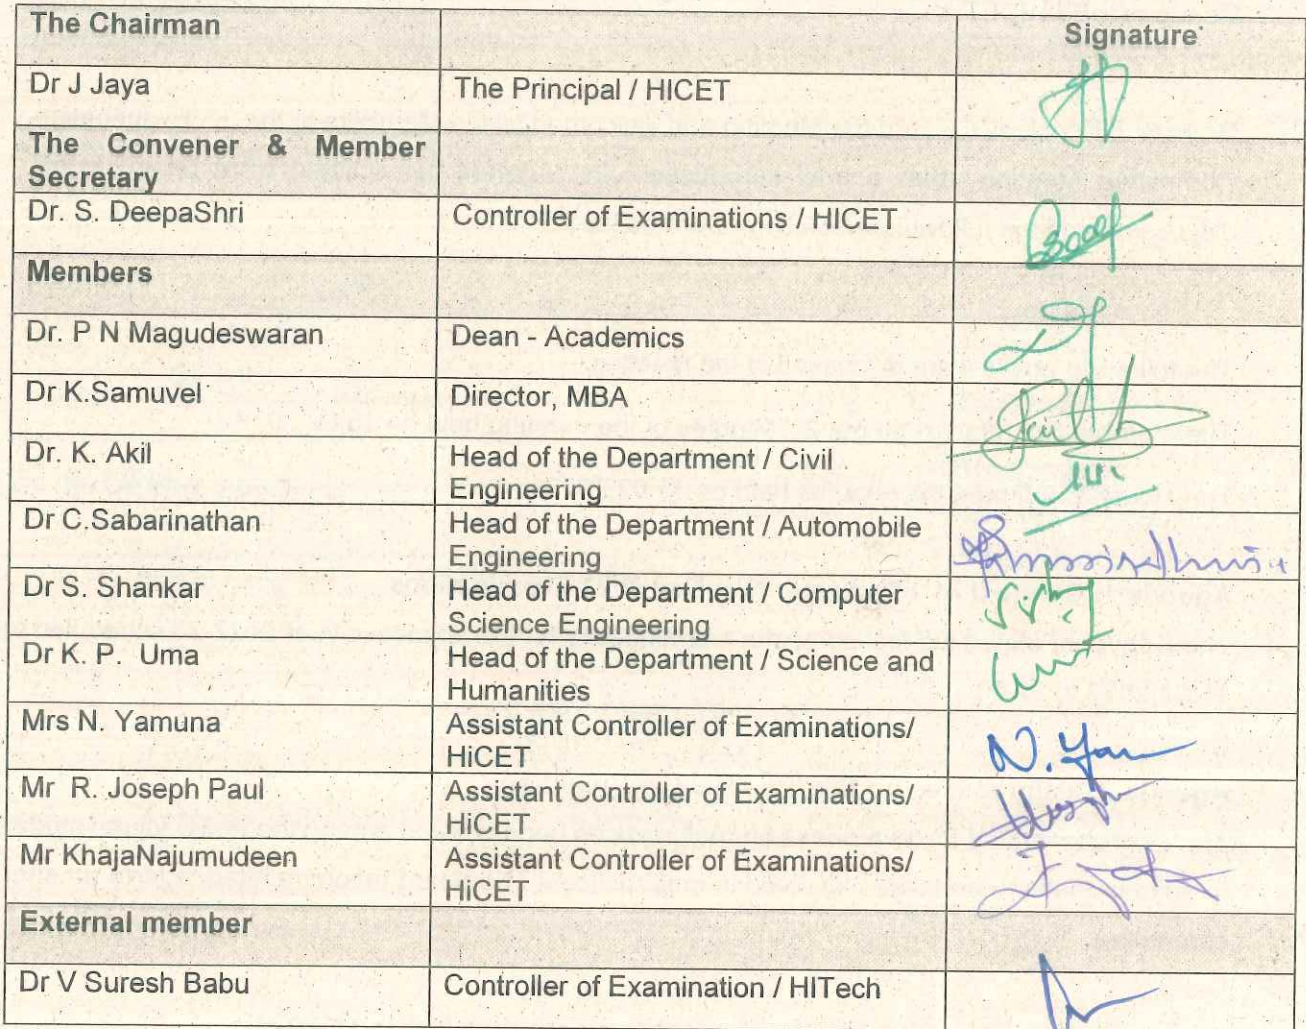 The Chairman
Signature
Dr J Jaya
The Principal / HICET
The Convener & Member
Secretary
Dr. S. DeepaShri
Controller of Examinations / HICET
Members
Dr. P N Magudeswaran
Dean - Academics
Dr K.Samuvel
Director, MBA
Dr. K. Akil
Head of the Department / Civil
Engineering
Dr C.Sabarinathan
Head of the Department / Automobile
Engineering
Dr S. Shankar
Head of the Department / Computer
Science Engineering
Dr K. P. Uma
Head of the Department / Science and
Humanities
Mrs N. Yamuna
Assistant Controller of Examinations/
HiCET
N. Yam
Mr R. Joseph Paul
Assistant Controller of Examinations/
HiCET
Mr KhajaNajumudeen
Assistant Controller of Examinations/
HiCET
External member
Dr V Suresh Babu
Controller of Examination / HITech